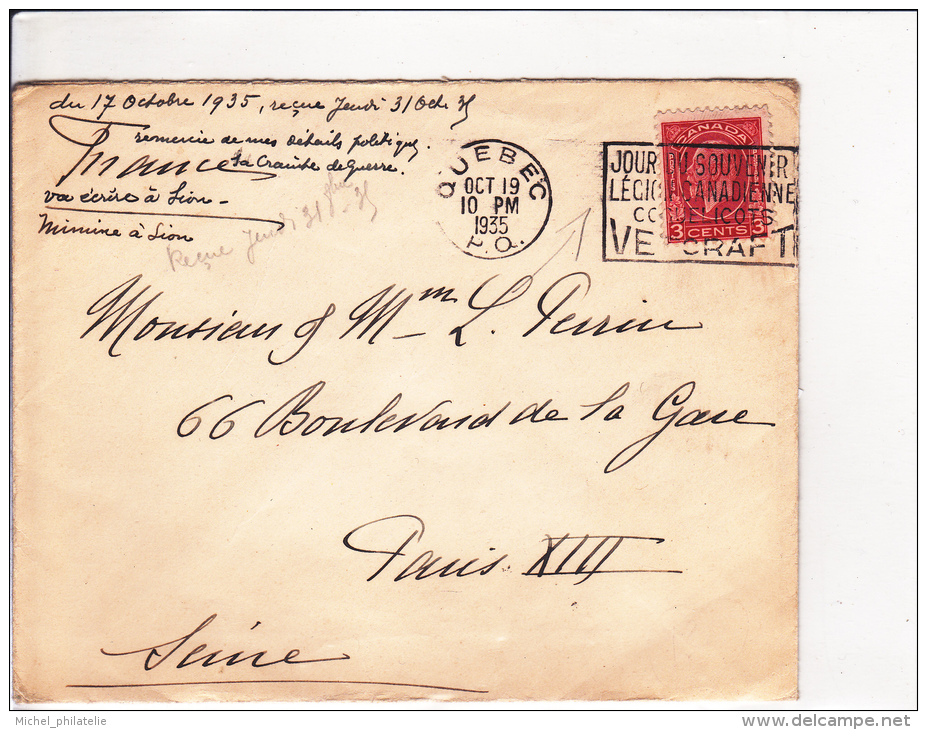 du 17 Octobre 1935, reçue Jeudi 31 Oct. 35
remercie de mes détails politiques.
France
sa Crainte de Guerre.
va écrire à Lion -
Mimine à Lion
Reçue Jeudi 31 8bre 35
QUEBEC
OCT 19
10 PM
1935
P.Q.
CANADA
3 CENTS 3
JOUR DU SOUVENIR
LÉGION CANADIENNE
COQUELICOTS
VETCRAFT
Monsieur & Mme L. Perrin
66 Boulevard de la Gare
Paris XIII
Seine
Michel_philatelie
delcampe.net